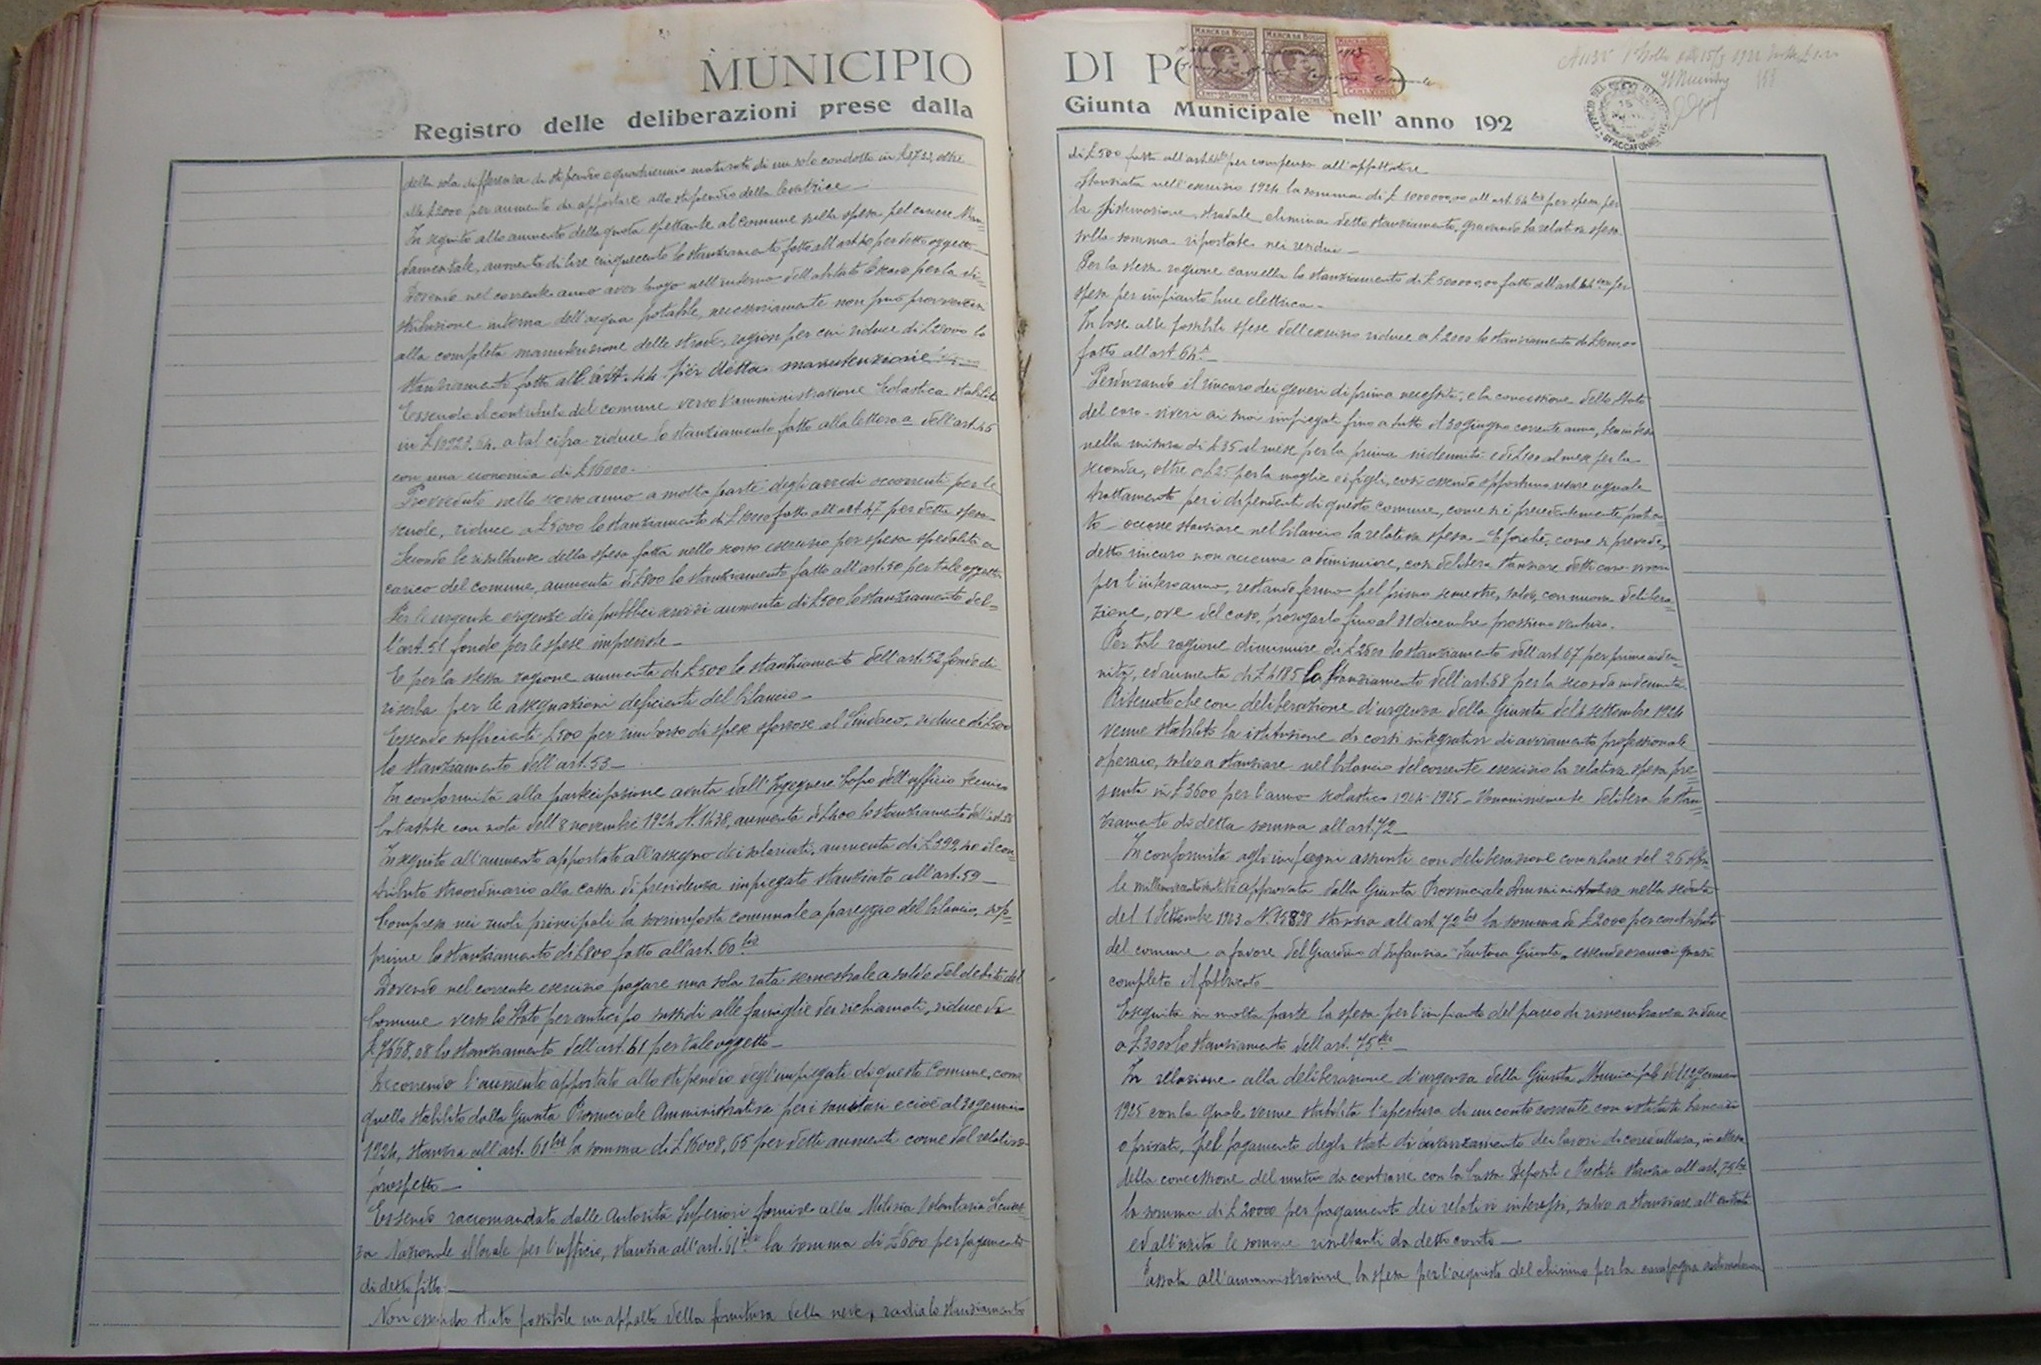 MUNICIPIO
Registro delle deliberazioni prese dalla
della sola differenza di stipendio e quadriennio maturato di un solo condotto in £ oltre
alle £2000 per aumento da apportare allo stipendio della levatrice
In seguito allo aumento della quota spettante al comune sulla spesa pel carcere Man=
damentale, aumenta di lire cinquecento lo stanziamento fatto all'art. per detto oggetto
Dovendo nel corrente anno aver luogo nell'interno dell'abitato lo scavo per la di=
stribuzione interna dell'acqua potabile, necessariamente non può provvedersi
alla completa manutenzione delle strade, ragion per cui riduce di lo
stanziamento fatto all'art. 44 per detta manutenzione
Essendo il contributo del comune verso l'amministrazione Scolastica stabilito
in a tal cifra riduce lo stanziamento fatto alla lettera a dell'art. 46
con una economia di £16000.
Provveduto nello scorso anno a molta parte degli arredi occorrenti per le
scuole, riduce a £5000 lo stanziamento di fatto all'art. 47 per detta spesa
Secondo le risultanze della spesa fatta nello scorso esercizio per spesa spedalità a
carico del comune, aumenta di £500 lo stanziamento fatto all'art. 50 per tale oggetto
Per le urgente esigenze dei pubblici servizi aumenta di £500 lo stanziamento del=
l'art. 51 fondo per le spese impreviste
E per la stessa ragione aumenta di £500 lo stanziamento dell'art. 52 fondo di
riserba per le assegnazioni deficienti del bilancio
Essendo sufficienti £500 per rimborso di spese forzose al Sindaco, riduce di £500
lo stanziamento dell'art. 53
In conformità alla partecipazione avuta dall'Ingegnere Capo dell'ufficio tecnico
Catastale con nota dell'8 novembre 1924 N. 1438, aumenta di £400 lo stanziamento dell'art.
In seguito all'aumento apportato all'assegno dei salariati, aumenta di £199,40 il con=
tributo straordinario alla cassa di previdenza impiegati stanziato all'art. 59
Compresa nei ruoli principali la sovraimposta comunale a pareggio del bilancio, sop=
prime lo stanziamento di £800 fatto all'art. 60 bis
Dovendo nel corrente esercizio pagare una sola rata semestrale a saldo del debito del
Comune verso lo Stato per anticipo sussidi alle famiglie dei richiamati, riduce di
£7668,08 lo stanziamento dell'art. 61 per tale oggetto
Decorrendo l'aumento apportato allo stipendio degl'impiegati di questo Comune, come
quello stabilito dalla Giunta Provinciale Amministrativa per i sanitari e cioè al 30 gennaio
1924, stanzia all'art. 61 bis la somma di £16008,65 per detti aumenti come dal relativo
prospetto
Essendo raccomandato dalle Autorità Superiori fornire alla Milizia Volontaria Sicurez=
za Nazionale il locale per l'ufficio, stanzia all'art. 61 la somma di £600 per pagamento
di detto fitto
Non essendo stato possibile un appalto della fornitura della neve, radia lo stanziamento
DI PO
Giunta Municipale nell' anno 192
MARCA DA BOLLO
MARCA DA BOLLO
SPACCAFORNO
di £500 fatto all'art. per compenso all'appaltatore
Stanziata nell'esercizio 1924 la somma di £ 1000000,00 all'art. 64 bis per spesa per
la sistemazione stradale elimina detto stanziamento, gravando la relativa spesa
sulla somma riportata nei residui
Per la stessa ragione cancella lo stanziamento di £500000,00 fatto all'art. 64 per
spesa per impianto luce elettrica
In base alle possibili spese dell'esercizio riduce a £2000 lo stanziamento di
fatto all'art. 64
Perdurando il rincaro dei generi di prima necessità, e la concessione dello Stato
del caro-viveri ai suoi impiegati fino a tutto il 30 giugno corrente anno,
nella misura di £35 al mese per la prima indennità e di £100 al mese per la
seconda, oltre a £25 per la moglie e i figli, così essendo opportuno usare uguale
trattamento per i dipendenti di questo comune, come si è precedentemente pratica=
to, occorre stanziare nel bilancio la relativa spesa. E poichè, come si prevede,
detto rincaro non accenna a diminuire, così delibera stanziare detto caro-viveri
per l'intero anno, restando fermo pel primo semestre, salvo, con nuova delibera=
zione, ove del caso, prorogarlo fino al 31 dicembre prossimo venturo.
Per tale ragione diminuisce di £2500 lo stanziamento dell'art. 67 per prima inden=
nità, ed aumenta di £4185 lo stanziamento dell'art. 68 per la seconda indennità
Ritenuto che con deliberazione d'urgenza della Giunta del 4 settembre 1924
venne stabilito la istituzione di corsi integrativi di avviamento professionale
operaio, salvo a stanziare nel bilancio del corrente esercizio la relativa spesa pre=
sunta in £3600 per l'anno scolastico 1924-1925 Unanimemente delibera lo stan=
ziamento di detta somma all'art. 72
In conformità agli impegni assunti con deliberazione consiliare del 26 apri
le millenovecento approvata dalla Giunta Provinciale Amministrativa nella seduta
del 1 Settembre 1923 N. 15898 stanzia all'art. 72 bis la somma di £2000 per contributo
del comune a favore del Giardino d'Infanzia "Santoro Giunta" essendo oramai quasi
completo il fabbricato
Eseguita in molta parte la spesa per l'impianto del parco di rimembranza riduce
a £3000 lo stanziamento dell'art. 75
In relazione alla deliberazione d'urgenza della Giunta Municipale del gennaio
1925 con la quale venne stabilita l'apertura di un conto corrente con istituti bancari
o privati, pel pagamento degli stati di avanzamento dei lavori di conduttura, in attesa
della concessione del mutuo da contrarre con la Cassa Depositi e Prestiti stanzia all'art. 75
la somma di £20000 per pagamento dei relativi interessi, salvo a stanziare all'entrata
ed all'uscita le somme risultanti da detto conto
Passata all'amministrazione la spesa per l'acquisto del chinino per la campagna antimalarica